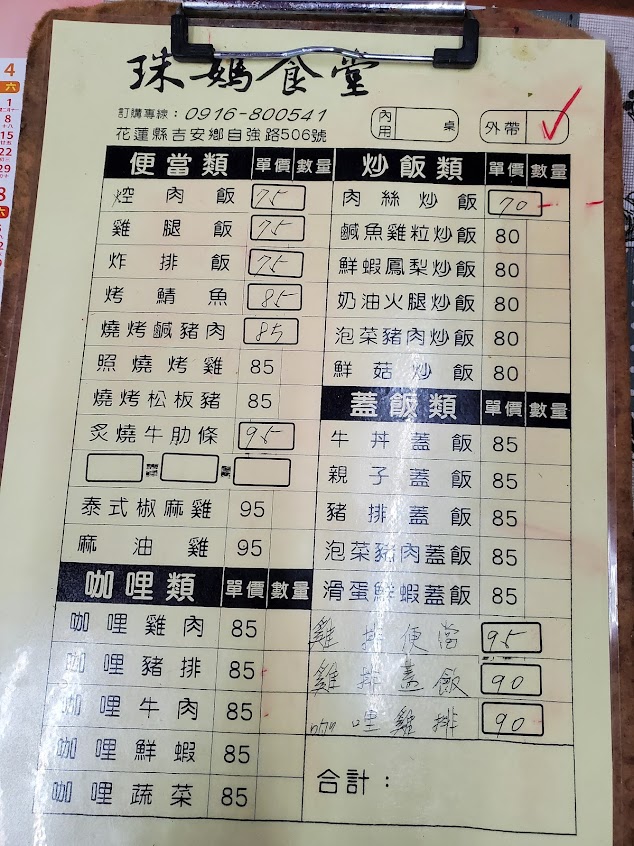 珠媽食堂
訂購專線：0916-800541
花蓮縣吉安鄉自強路506號
內用 桌 外帶
便當類 單價 數量
焢肉飯 75
雞腿飯 75
炸排飯 75
烤鯖魚 85
燒烤鹹豬肉 85
照燒烤雞 85
燒烤松板豬 85
炙燒牛肋條 95
泰式椒麻雞 95
麻油雞 95
咖哩類 單價 數量
咖哩雞肉 85
咖哩豬排 85
咖哩牛肉 85
咖哩鮮蝦 85
咖哩蔬菜 85
炒飯類 單價 數量
肉絲炒飯 70
鹹魚雞粒炒飯 80
鮮蝦鳳梨炒飯 80
奶油火腿炒飯 80
泡菜豬肉炒飯 80
鮮菇炒飯 80
蓋飯類 單價 數量
牛丼蓋飯 85
親子蓋飯 85
豬排蓋飯 85
泡菜豬肉蓋飯 85
滑蛋鮮蝦蓋飯 85
雞排便當 95
雞排蓋飯 90
咖哩雞排 90
合計：
4
六
1
8
15
22
29